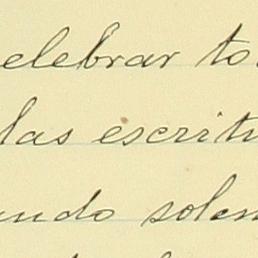 elebrar to
las escritu
undo solem